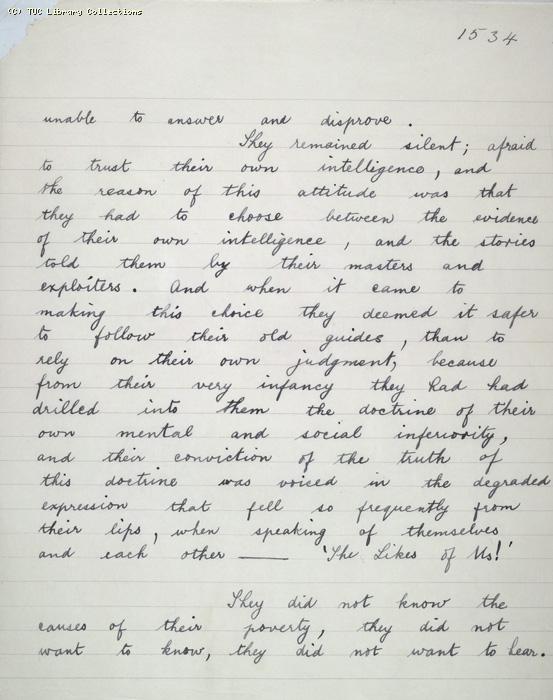 (C) TUC Library Collections
1534
unable to answer and disprove.
They remained silent; afraid
to trust their own intelligence, and
the reason of this attitude was that
they had to choose between the evidence
of their own intelligence, and the stories
told them by their masters and
exploiters. And when it came to
making this choice they deemed it safer
to follow their old guides, than to
rely on their own judgment, because
from their very infancy they had had
drilled into them the doctrine of their
own mental and social inferiority,
and their conviction of the truth of
this doctrine was voiced in the degraded
expression that fell so frequently from
their lips, when speaking of themselves
and each other — 'The Likes of Us!'
They did not know the
causes of their poverty, they did not
want to know, they did not want to hear.